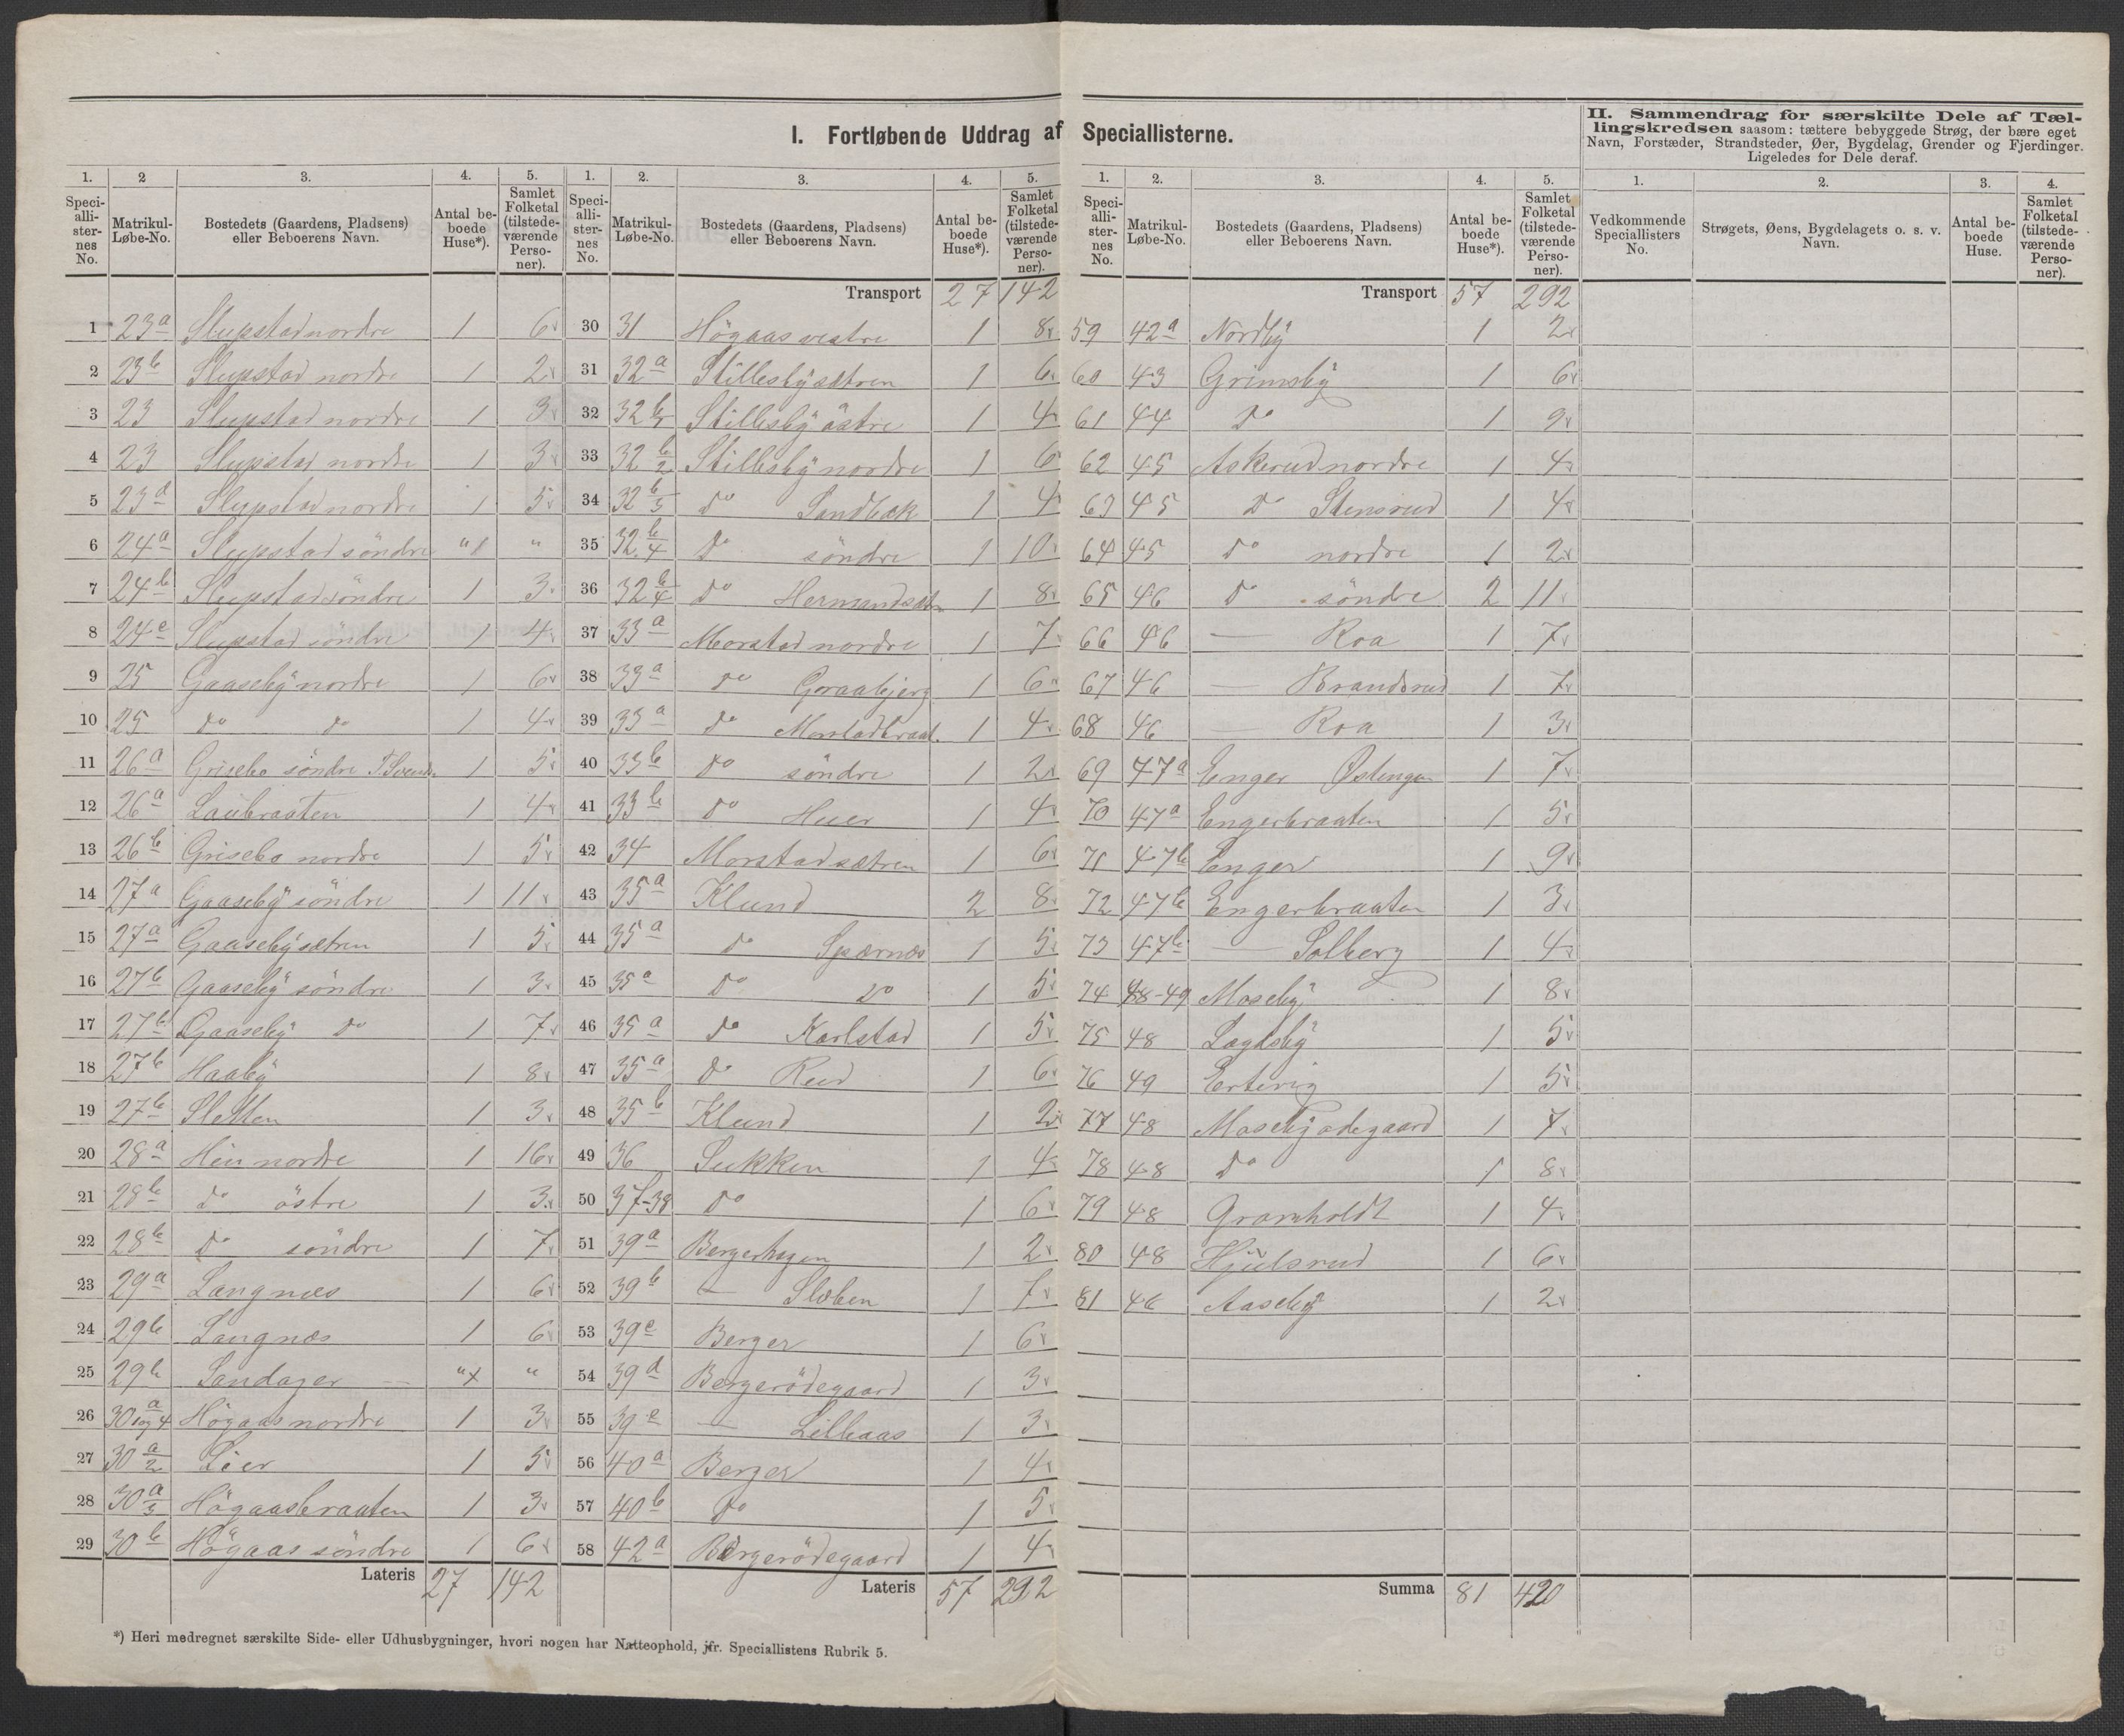 I. Fortløbende Uddrag af Speciallisterne.
II. Sammendrag for særskilte Dele af Tæl-
lingskredsen saasom: tættere bebyggede Strøg, der bære eget
Navn, Forstæder, Strandsteder, Øer, Bygdelag, Grender og Fjerdinger.
Ligeledes for Dele deraf.
1. 2 3. 4. 5.
Speci-alli-ster-nes No. Matrikul-Løbe-No. Bostedets (Gaardens, Pladsens) eller Beboerens Navn. Antal be-boede Huse*). Samlet Folketal (tilstede-værende Perso-ner).
1 23a Slupstad nordre 1 6
2 23b Slupstad nordre 1 2
3 23 Slupstad nordre 1 3
4 23 Slupstad nordre 1 3
5 23d Slupstad nordre 1 5
6 24a Slupstad söndre " "
7 24b Slupstad söndre 1 3
8 24c Slupstad söndre 1 4
9 25 Gaaseby nordre 1 6
10 25 do do 1 4
11 26a Grisebo söndre 1 5
12 26a Laubraaten 1 4
13 26b Grisebo nordre 1 5
14 27a Gaaseby söndre 1 11
15 27a Gaasebysætren 1 5
16 27b Gaaseby söndre 1 3
17 27b Gaaseby do 1 7
18 27b Haaby 1 8
19 27b Sletten 1 3
20 28a Hen nordre 1 16
21 28b do östre 1 3
22 28b do söndre 1 7
23 29a Langnæs 1 6
24 29b Langnæs 1 6
25 29b Sandager — " "
26 30 a 1og4 Högaas nordre 1 3
27 30 a/2 Lier 1 5
28 30 a/3 Högaasbraaten 1 3
29 30b Högaas söndre 1 6
Lateris 27 142
1. 2. 3. 4. 5.
Speci-alli-ster-nes No. Matrikul-Løbe-No. Bostedets (Gaardens, Pladsens) eller Beboerens Navn. Antal be-boede Huse*). Samlet Folketal (tilstede-værende Perso-ner).
Transport 27 142
30 31 Högaas vestre 1 8
31 32a Stillesbysætren 1 6
32 32 b/1 Stillesby östre 1 4
33 32 b/2 Stillesby nordre 1 6
34 32 b/3 do Sandbæk 1 4
35 32 b/4 do söndre 1 10
36 32 b/4 do 1 8
37 33a Morstad nordre 1 7
38 33a do Graabjerg 1 6
39 33a do Morstadbraat. 1 4
40 33b do söndre 1 2
41 33b do Huer 1 4
42 34 Morstadsætren 1 6
43 35a Klund 2 8
44 35a do Spærnæs 1 5
45 35a do do 1 5
46 35a do Karlstad 1 5
47 35a do Rud 1 6
48 35b Klund 1 2
49 36 Sukken 1 4
50 37-38 do 1 6
51 39a Bergerhagen 1 2
52 39b — Sloben 1 7
53 39c Berger 1 6
54 39d Bergerödegaard 1 3
55 39e — Lilleaas 1 3
56 40a Berger 1 4
57 40b do 1 5
58 42a Bergerödegaard 1 4
Lateris 57 292
1. 2. 3. 4. 5.
Speci-alli-ster-nes No. Matrikul-Løbe-No. Bostedets (Gaardens, Pladsens) eller Beboerens Navn. Antal be-boede Huse*). Samlet Folketal (tilstede-værende Perso-ner).
Transport 57 292
59 42a Nordby 1 2
60 43 Grimsby 1 6
61 44 do 1 9
62 45 Askerud nordre 1 4
63 45 do Stensrud 1 4
64 45 do nordre 1 2
65 46 do söndre 2 11
66 46 — Roa 1 7
67 46 — Brandsrud 1 7
68 46 — Roa 1 3
69 47a Enger Østengen 1 7
70 47a Engerbraaten 1 5
71 47b Enger 1 9
72 47b Engerbraaten 1 3
73 47b — Solberg 1 4
74 48-49 Moseby 1 8
75 48 Lagdsby 1 5
76 49 Ertevig 1 5
77 48 Mosebyödegaard 1 7
78 48 do 1 8
79 48 Gramholdt 1 4
80 48 Hjulsrud 1 6
81 46 Aaseby 1 2
Summa 81 420
1. 2. 3. 4.
Vedkommende Speciallisters No. Strøgets, Øens, Bygdelagets o. s. v. Navn. Antal be-boede Huse. Samlet Folketal (tilstede-værende Perso-ner).
*) Heri medregnet særskilte Side- eller Udhusbygninger, hvori nogen har Natteophold, jfr. Speciallistens Rubrik 5.